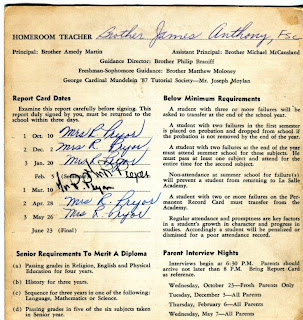 HOMEROOM TEACHER Brother James Anthony, FSC
Principal: Brother Amedy Martin
Assistant Principal: Brother Michael McCausland
Guidance Director: Brother Philip Braniff
Freshman-Sophomore Guidance: Brother Matthew Moloney
George Cardinal Mundelein '87 Tutorial Society—Mr. Joseph Moylan
Report Card Dates
Examine this report carefully before signing. This report duly signed by you, must be returned to the school within three days.
1 Oct. 10 Mrs R. Pryor
2 Dec. 2 Mrs R. Pryor
3 Jan. 20 Mrs R. Pryor
Feb. 5
1 Mar. 10 Mr. R. Pryor
2 Apr. 28 Mrs R. Pryor
3 May 26 Mrs R. Pryor
June 23 (Final)
Senior Requirements To Merit A Diploma
(a) Passing grades in Religion, English and Physical Education for four years.
(b) History for three years.
(c) Sequence for three years in one of the following: Language, Mathematics or Science.
(d) Passing grades in five of the six subjects taken in Senior year.
Below Minimum Requirements
A student with three or more failures will be asked to transfer at the end of the school year.
A student with two failures in the first semester is placed on probation and dropped from school if the probation is not removed by the end of the year.
A student with two failures at the end of the year must attend summer school for these subjects. He must pass at least one subject and attend for the entire time for the second subject.
Non-attendance at summer school for failure(s) will prevent a student from returning to La Salle Academy.
A student with two or more failures on the Permanent Record Card must transfer from the Academy.
Regular attendance and promptness are key factors in a student's growth in character and progress in studies. Accordingly a student will be penalized or dismissed for a poor attendance record.
Parent Interview Nights
Interviews begin at 6:30 P.M. Parents should arrive not later than 8 P.M. Bring Report Card at reference.
Wednesday, October 23—Frosh Parents Only
Tuesday, December 3—All Parents
Thursday, February 6—All Parents
Wednesday, May 7—All Parents